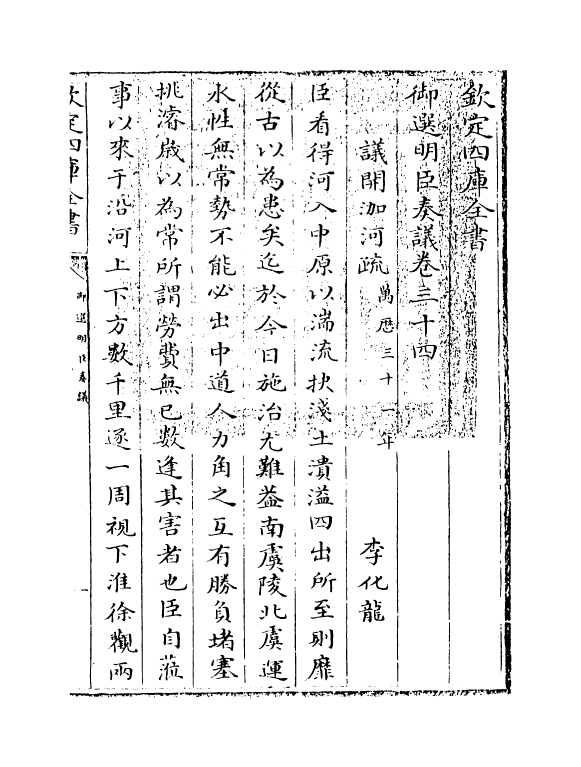 欽定四庫全書
御選明臣奏議卷三十四
議開泇河疏萬厯三十一年 李化龍
臣看得河入中原以湍流抉淺土潰溢四出所至則靡
從古以為患矣迄於今日施治尤難葢南虞陵北虞運
水性無常勢不能必出中道人力角之互有勝負堵塞
挑濬歲以為常所謂勞費無已數逢其害者也臣自蒞
事以來于沿河上下方數千里逐一周視下淮徐觀兩
欽定四庫全書
御選明臣奏議
一